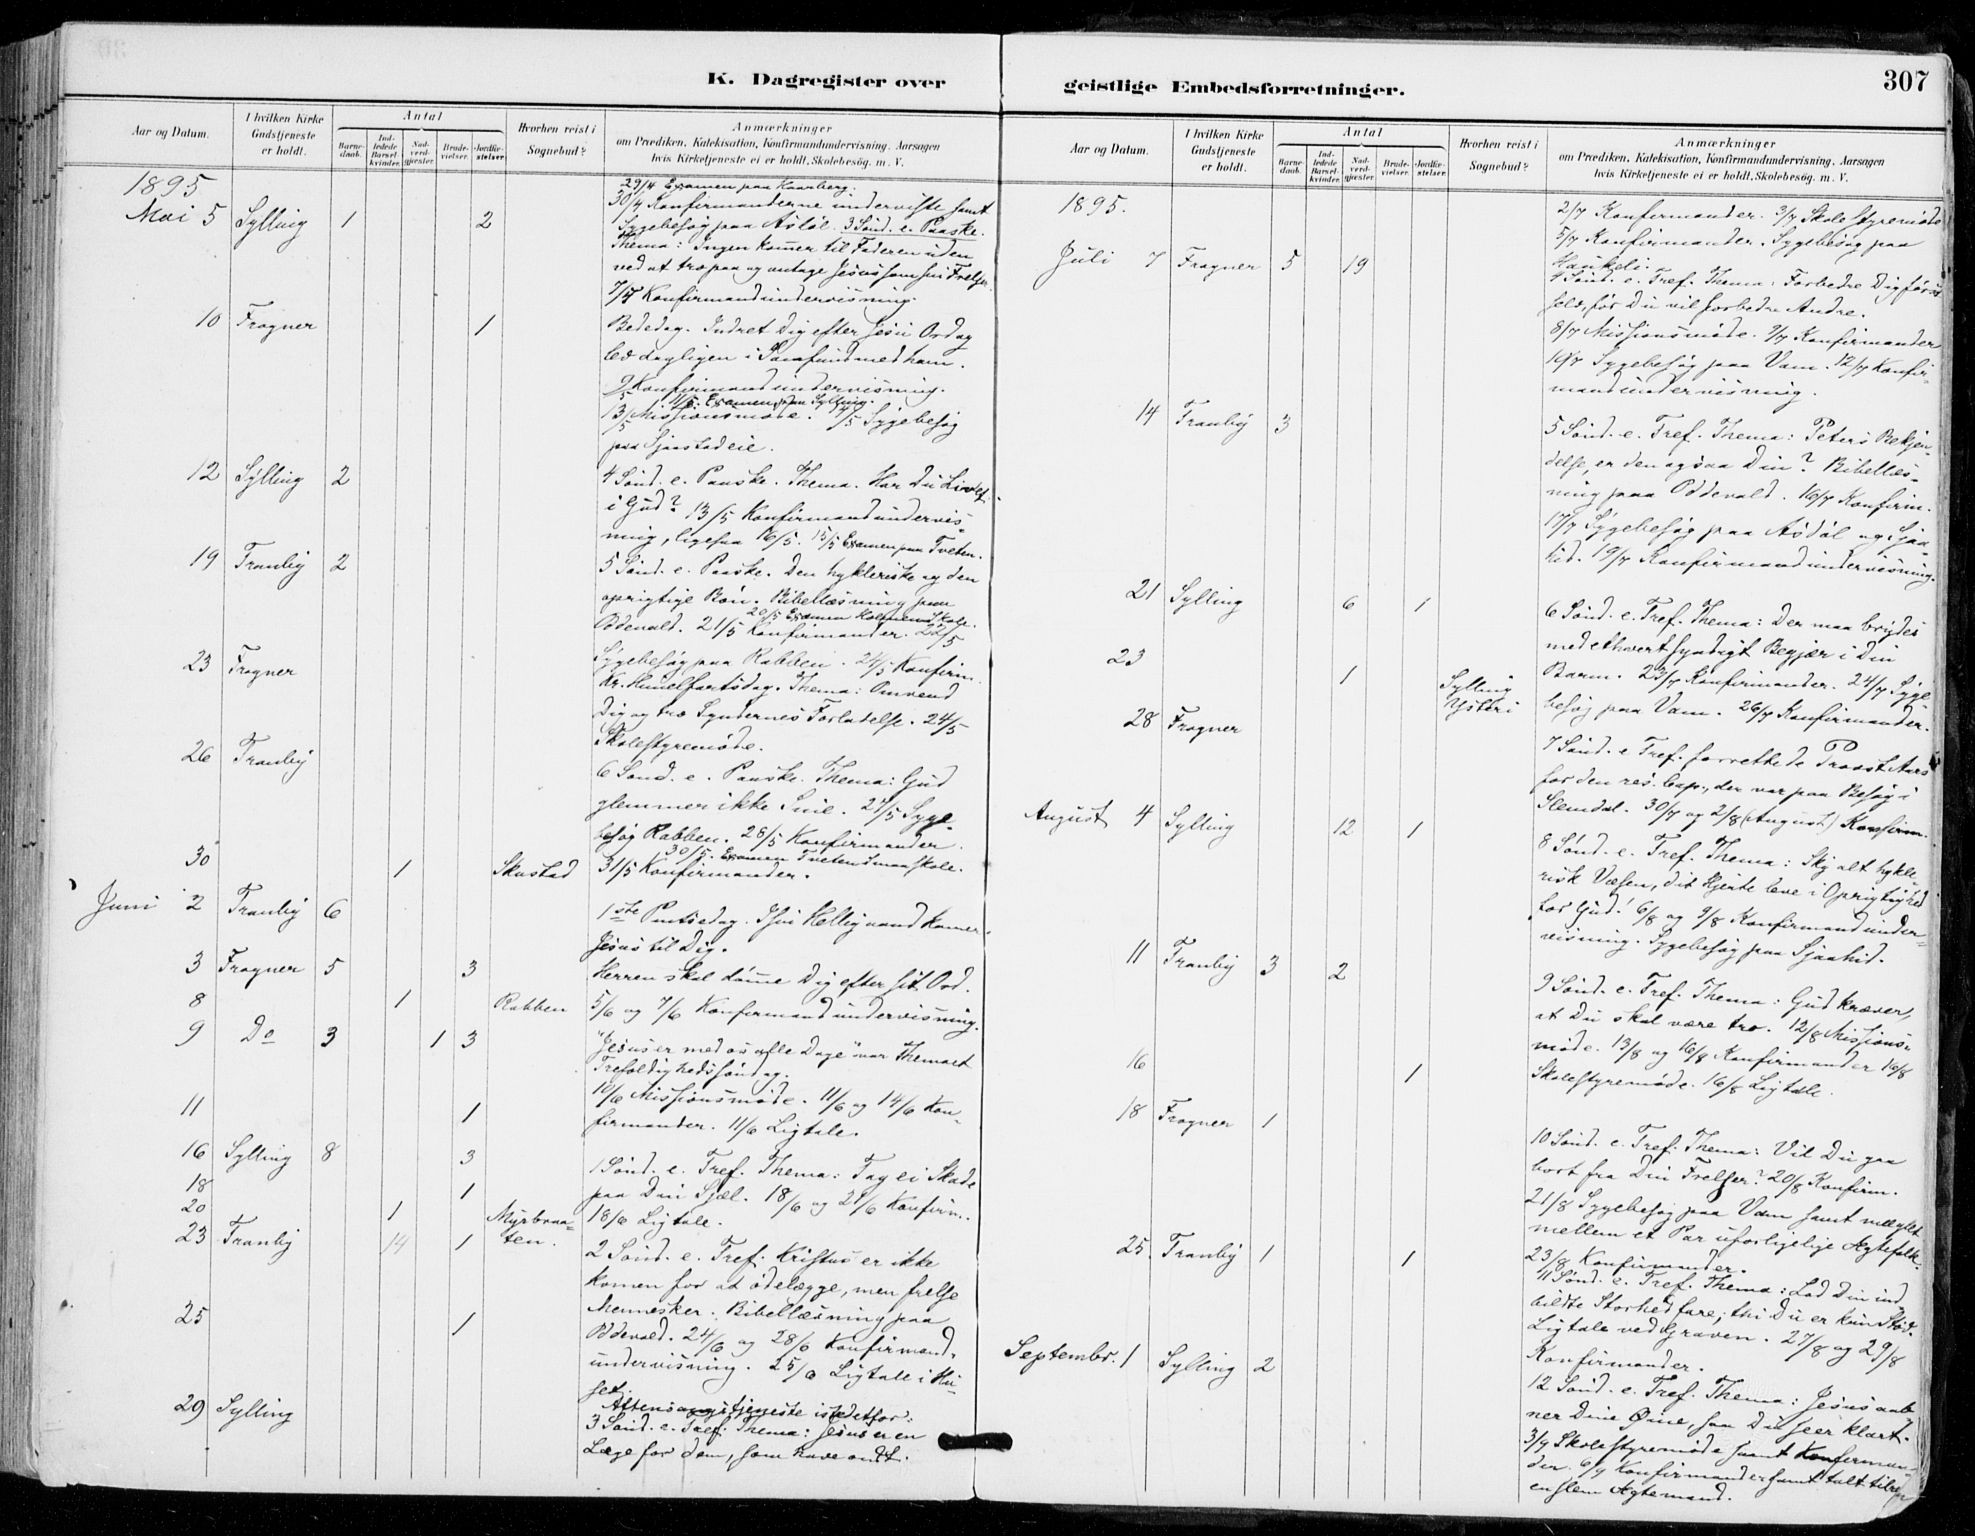 K. Dagregister over
Aar og Datum.
I hvilken Kirke Gudstjeneste er holdt.
Antal
Barne-daab.
Ind-ledede Barsel-kvinder.
Nad-verd-gjester.
Brude-vielser.
Jordfæ-stelser.
Hvorhen reist i Sognebud?
Anmærkninger
om Prædiken, Katekisation, Konfirmandundervisning, Aarsagen
hvis Kirketjeneste ei er holdt, Skolebesøg. m. V.
1895
29/4 Examen paa Kaarberg.
30/4 Konfirmanderne underviste samt
Mai 5 Sylling 1 2 Sygebesøg paa Asdøl. 3 Sønd. e. Paaske.
Thema: Ingen kommer til Faderen uden
ved at tro paa og antage Jesus som sin Frelser.
7/5 Konfirmandundervisning.
10 Frogner 1 Bededag. Indret Dig efter Jesu Ord og
lev dagligen i Samfund med ham.
9/5 Konfirmandundervisning.
11/5. Examen paa Sylling.
13/5 Missionsmøde. 14/5 Sygebesøg
paa Sjaastadeie.
12 Sylling 2 4 Sønd. e. Paaske. Thema. Har Du Livet
i Gud? 13/5 Konfirmandundervis-
ning, ligesaa 16/5. 15/5 Examen paa Tveten.
19 Tranby 2 5 Sønd. e. Paaske. Den hykleriske og den
oprigtige Bøn. Bibellæsning paa
20/5 Examen Holmens Skole.
Oddevald. 21/5 Konfirmander. 22/5
Sygebesøg paa Rabben. 24/5 Konfirm.
23 Frogner Kr. Himmelfartsdag. Thema: Omvend
Dig og tro Syndernes Forladelse. 24/5
Skolestyremøde.
26 Tranby 6 Sønd. e. Paaske. Thema: Gud
glemmer ikke Sine. 27/5 Syge-
besøg Rabben. 28/5 Konfirmander.
30/5. Examen Tvetens Smaaskole.
30 1 Skustad 31/5 Konfirmander.
Juni 2 Tranby 6 1ste Pintsedag. I sin Helligaand kommer
Jesus til Dig.
3 Frogner 5 3 Herren skal dømme Dig efter sit Ord.
8 1 Rabben 5/6 og 7/6 Konfirmandundervisning.
9 Do 3 1 3 "Jesus er med os alle Dage" var Themaet
Trefoldighedssøndag.
10/6 Missionsmøde. 11/6 og 14/6 Kon-
11 1 firmander. 11/6 Ligtale.
16 Sylling 8 3 1 Sønd. e. Tref. Thema: Tag ei Skade
18 1 paa Din Sjæl. 18/6 og 21/6 Konfirm.
20 1 Myrbraa- 18/6 Ligtale.
23 Tranby 14 1 ten. 2 Sønd. e. Tref. Kristus er ikke
kommen for at ødelægge, men frelse
Mennesker. Bibellæsning paa
25 1 Oddevald. 24/6 og 28/6 Konfirmand-
undervisning. 25/6 Ligtale i Hu-
set.
Aftensangstjeneste istedetfor:
29 Sylling 3 Sønd. e. Tref. Thema: Jesus er en
Læge for dem, som have ondt.
geistlige Embedsforretninger.
307
Aar og Datum.
I hvilken Kirke Gudstjeneste er holdt.
Antal
Barne-daab.
Ind-ledede Barsel-kvinder.
Nad-verd-gjester.
Brude-vielser.
Jordfæ-stelser.
Hvorhen reist i Sognebud?
Anmærkninger
om Prædiken, Katekisation, Konfirmandundervisning, Aarsagen
hvis Kirketjeneste ei er holdt, Skolebesøg. m. V.
1895.
2/7 Konfirmander. 3/7 Skolestyremøde
5/7 Konfirmander. Sygebesøg paa
Haukeli.
Juli 7 Frogner 5 19 4 Sønd. e. Tref. Thema: Forbedre Dig først
selv, før Du vil forbedre Andre.
8/7 Missionsmøde. 9/7 Konfirmander
10/7 Sygebesøg paa Vam. 12/7 Konfir-
mandundervisning.
14 Tranby 3 5 Sønd. e. Tref. Thema: Peters Bekjen-
delse, er den ogsaa Din? Bibellæs-
ning paa Oddevald. 16/7 Konfirm.
17/7 Sygebesøg paa Asdøl og Sjaa-
hid. 19/7 Konfirmandundervisning.
21 Sylling 6 1 6 Sønd. e. Tref. Thema: Der maa brydes
med ethvert syndigt Begjær i Din
23 1 Sylling Ysteri Barm. 23/7 Konfirmander. 24/7 Syge-
besøg paa Vam. 26/7 Konfirmander.
28 Frogner 7 Sønd. e Tref. forrettede Provst Aars
for den res. Cap., der var paa Besøg i
Slemdal. 30/7 og 2/8 (August) Konfirm.
August 4 Sylling 12 1 8 Sønd. e. Tref. Thema: Sky alt hykle-
risk Væsen, dit Hjerte leve i Oprigtighed
for Gud! 6/8 og 9/8 Konfirmandunder-
visning. Sygebesøg paa Sjaahid.
11 Tranby 3 2 9 Sønd. e. Tref. Thema: Gud kræver,
at Du skal være tro. 12/8 Missions-
møde. 13/8 og 16/8 Konfirmander 16/8
16 1 Skolestyremøde. 16/8 Ligtale.
18 Frogner 1 10 Sønd. e. Tref. Thema: Vil Du gaa
bort fra Din Frelser? 20/8 Konfirm.
21/8 Sygebesøg paa Vam samt mæglet
mellem et Par uforligelige Ægtefolk.
23/8 Konfirmander.
25. Tranby 1 1 11 Sønd. e. Tref. Thema: Lad Din ind-
bildte Storhed fare; thi Du er kun Støv.
Ligtale ved Graven. 27/8 og 29/8
Konfirmander.
Septembr. 1 Sylling 2 12 Sønd. e. Tref. Thema: Jesus aab-
ner Dine Øine, saa Du seer klart.
3/9 Skolestyremøde samt Konfirman-
der. 6/9 Konfirmander samt talt til
en slem Ægtemand.